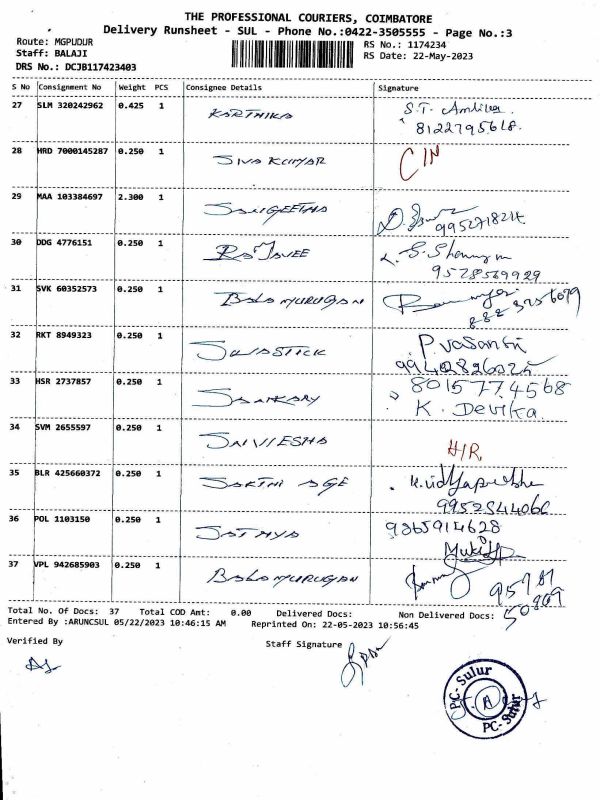 THE PROFESSIONAL COURIERS, COIMBATORE
Delivery Runsheet - SUL - Phone No.:0422-3505555 - Page No.:3
Route: MGPUDUR
RS No.: 1174234
Staff: BALAJI
RS Date: 22-May-2023
DRS No.: DCJB117423403
S No Consignment No Weight PCS Consignee Details Signature
27 SLM 320242962 0.425 1 KARTHIKA S.T. Ambika.
8122795618.
28 HRD 7000145287 0.250 1 SIVA KUMAR C/N
29 MAA 103384697 2.300 1 SANGEETHA
9952718214
30 DDG 4776151 0.250 1
9578569929
31 SVK 60352573 0.250 1 BALAMURUGAN
32 RKT 8949323 0.250 1 SWASTICK P.Vasanthi
33 HSR 2737857 0.250 1 SANKARY 8015774568
K. Devika
34 SVM 2655597 0.250 1 H/R
35 BLR 425660372 0.250 1 SAKTHI AGE K.vidhyaprabha
9952544066
36 POL 1103150 0.250 1 SATHYA 9265914628
37 VPL 942685903 0.250 1 BALAMURUGAN
95787
50869
Total No. Of Docs: 37 Total COD Amt: 0.00 Delivered Docs: Non Delivered Docs:
Entered By :ARUNCSUL 05/22/2023 10:46:15 AM Reprinted On: 22-05-2023 10:56:45
Verified By Staff Signature
PC- Sulur
PC- Sulur